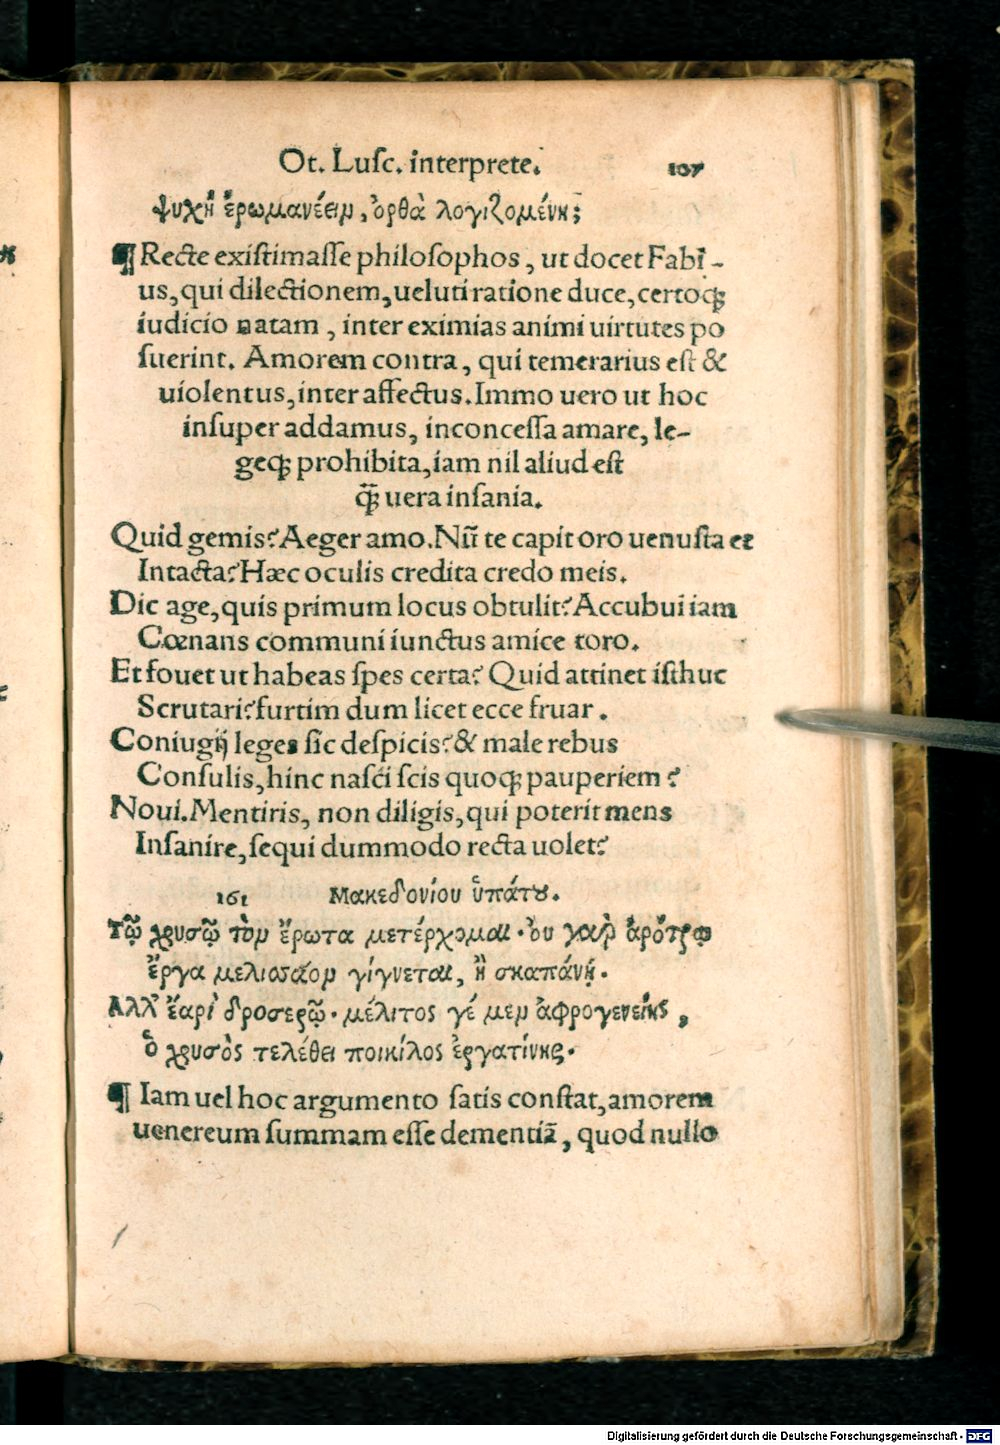 Ot. Luſc. interprete. 107
ψυχὴ ἐρωμανέειν, ὀρθὰ λογιζομένη;
¶ Recte exiſtimaſſe philoſophos, ut docet Fabi-
us, qui dilectionem, ueluti ratione duce, certoq;
iudicio natam, inter eximias animi uirtutes po
ſuerint. Amorem contra, qui temerarius eſt &
uiolentus, inter affectus. Immo uero ut hoc
inſuper addamus, inconceſſa amare, le-
geq; prohibita, iam nil aliud eſt
q̃; uera inſania.
Quid gemis? Aeger amo. Nũ te capit oro uenuſta et
Intacta? Hæc oculis credita credo meis.
Dic age, quis primum locus obtulit? Accubui iam
Cœnans communi iunctus amice toro.
Et fouet ut habeas ſpes certa? Quid attinet iſthuc
Scrutari? furtim dum licet ecce fruar.
Coniugij leges ſic deſpicis? & male rebus
Conſulis, hinc naſci ſcis quoq; pauperiem?
Noui. Mentiris, non diligis, qui poterit mens
Inſanire, ſequi dummodo recta uolet?
161 Μακεδονίου ὑπάτȣ.
Τῷ χρυσῷ τὸν ἔρωτα μετέρχομαι· ὀυ γαὶρ ἀρότρῳ
ἔργα μελισσάον γίγνεται, ἢ σκαπάνῃ.
Αλλ' ἔαρι δροσερῷ· μέλιτος γέ μεν ἀφρογενείης,
ὁ χρυσὸς τελέθει ποικίλος ἐργατίνης.
¶ Iam uel hoc argumento ſatis conſtat, amorem
uenereum ſummam eſſe dementiā, quod nullo
Digitalisierung gefördert durch die Deutsche Forschungsgemeinschaft - DFG